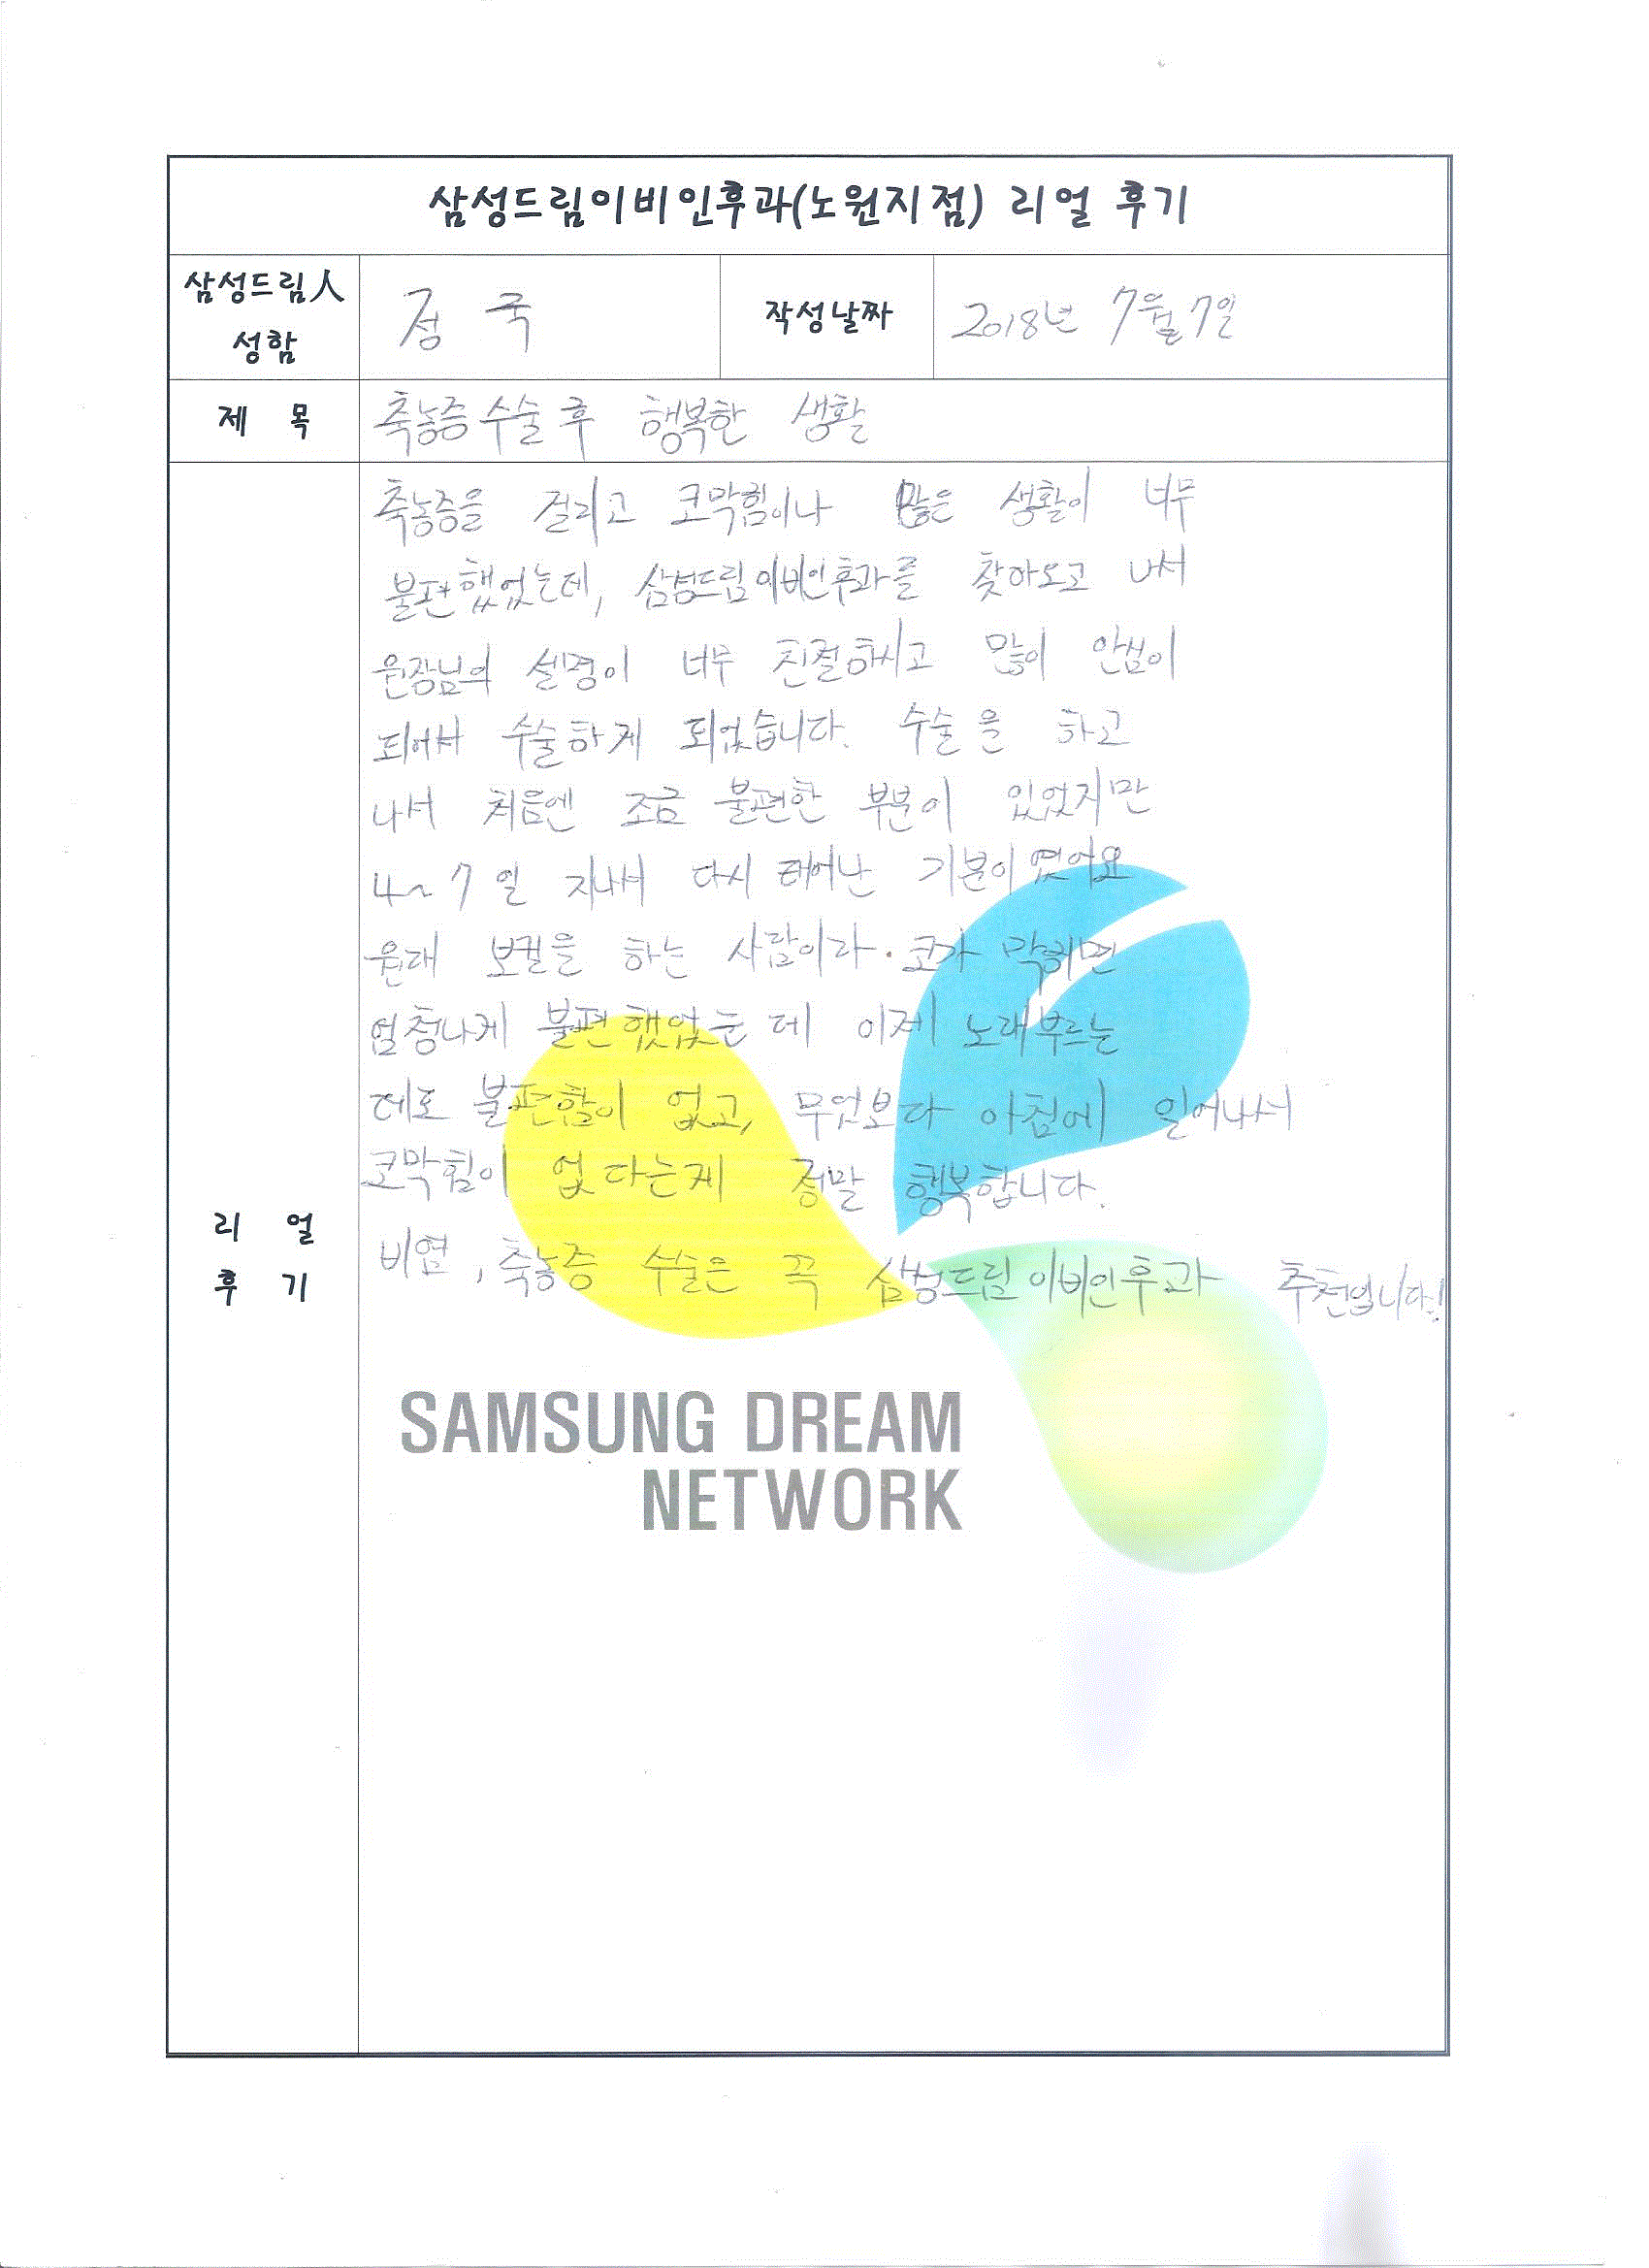 삼성드림이비인후과(노원지점) 리얼 후기
삼성드림人
성함
정 국
작성날짜
2018년 7월 7일
제 목
축농증 수술 후 행복한 생활
축농증을 걸리고 코막힘이나 많은 생활이 너무
불편했었는데, 삼성드림이비인후과를 찾아오고 나서
원장님의 설명이 너무 친절하시고 많이 안심이
되어서 수술하게 되었습니다. 수술을 하고
나서 처음엔 조금 불편한 부분이 있었지만
4~7일 지나서 다시 태어난 기분이였어요
원래 보컬을 하는 사람이라. 코가 막히면
엄청나게 불편했었는데 이제 노래부르는
데로 불편함이 없고, 무엇보다 아침에 일어나서
코막힘이 없다는게 정말 행복합니다.
비염, 축농증 수술은 꼭 삼성드림이비인후과 추천입니다!
리 얼
후 기
SAMSUNG DREAM
NETWORK